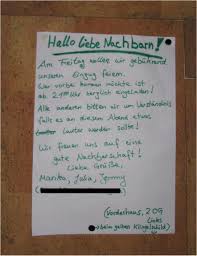 Hallo liebe Nachbarn!
Am Freitag wollen wir gebührend
unseren Einzug feiern.
Wer vorbei kommen möchte ist
ab 21 Uhr herzlich eingeladen!
Alle anderen bitten wir um Verständnis
falls es an diesem Abend etwas
lauter werden sollte!
Wir freuen uns auf eine
gute Nachbarschaft!
Liebe Grüße,
Marita, Julia, Jenny
(Vorderhaus, 2OG
Links
beim gelben Klingelschild)